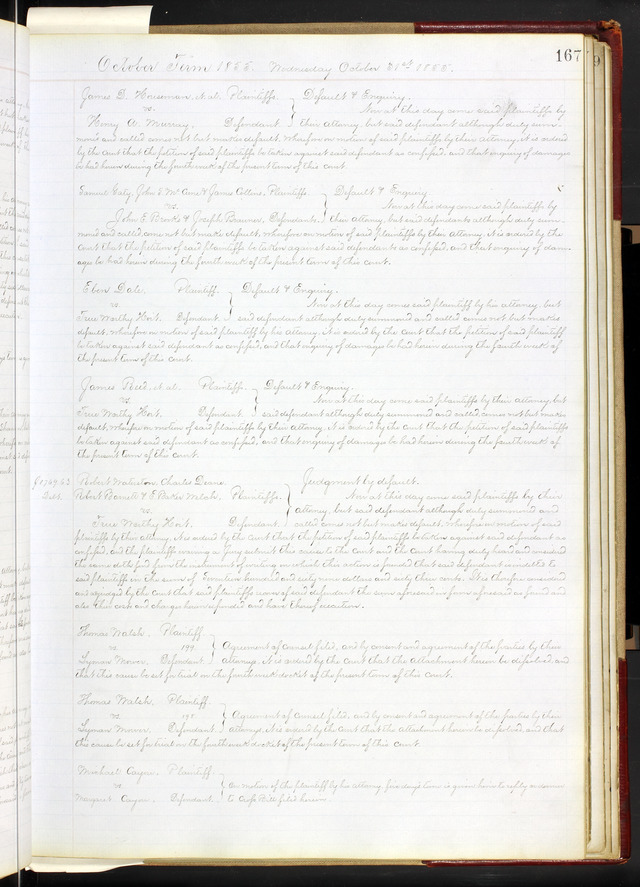 167
October Term 1855. Wednesday October 31st 1855.
James D. et al. Plaintiffs. } Default & Enquiry.
vs. Now at this day come said plaintiffs by
Henry A. Murray. Defendant. } their attorney, but said defendant although duly sum-
moned and called comes not but makes default, wherefore on motion of said plaintiffs by their attorney, it is ordered
by the court that the petition of said plaintiffs be taken against said defendant as confessed, and that enquiry of damages
be had herein during the fourth week of the present term of this court.
Samuel Gaty, John S. McCune & James Collins, Plaintiffs. } Default & Enquiry
vs. Now at this day come said plaintiffs by
John E. & Joseph Defendants. } their attorney, but said defendants although duly sum-
moned and called come not but make default, wherefore on motion of said plaintiffs by their attorney. It is ordered by the
court that the petition of said plaintiffs be taken against said defendants as confessed, and that enquiry of dam-
ages be had herein during the fourth week of the present term of this court.
Eben Dale. Plaintiff. } Default & Enquiry.
vs. Now at this day comes said plaintiff by his attorney, but
True Worthy Hoit. Defendant. } said defendant although duly summoned and called comes not but makes
default. Wherefore on motion of said plaintiff by his attorney. It is ordered by the court that the petition of said plaintiff
be taken against said defendant as confessed, and that enquiry of damages be had herein during the fourth week of
the present term of this court.
James Reed, et al. Plaintiffs. } Default & Enquiry.
vs Now at this day come said plaintiffs by their attorney, but
True Worthy Hoit. Defendant. } said defendant although duly summoned and called, comes not but makes
default, wherefore on motion of said plaintiffs by their attorney. It is ordered by the court that the petition of said plaintiffs
be taken against said defendant as confessed, and that enquiry of damages be had herein during the fourth week of
the present term of this court.
$1769.63 Robert Waterston, Charles Deane } Judgment by default.
Debt. Robert & E. Parker Welch. Plaintiffs. Now at this day come said plaintiffs by their
vs. attorney, but said defendant although duly summoned and
True Worthy Hoit. Defendant. } called comes not but makes default. Wherefore on motion of said
plaintiffs by their attorney, it is ordered by the court that the petition of said plaintiffs be taken against said defendant as
confessed, and the plaintiffs waiving a Jury submit this cause to the court and the court having duly heard and considered
the same doth find from the instrument of writing on which this action is founded that said defendant is indebted to
said plaintiffs in the sum of Seventeen hundred and sixty nine dollars and sixty three cents. It is therefore considered
and adjudged by the court that said plaintiffs recover of said defendant the sum aforesaid in form aforesaid so found and
also their costs and charges herein expended, and have thereof execution.
Thomas Walsh. Plaintiff. }
vs 199. Agreement of counsel filed, and by consent and agreement of the parties by their
Lyman Defendant. } attorneys. It is ordered by the court that the attachment herein be dissolved, and
that this cause be set for trial on the fourth week docket of the present term of this court.
Thomas Walsh. Plaintiff. }
vs Agreement of counsel filed, and by consent and agreement of the parties by their
Lyman Defendant } attorneys. It is ordered by the court that the attachment herein be dissolved, and that
this cause be set for trial on the fourth week docket of the present term of this court.
Michael Plaintiff. }
vs. on motion of the plaintiff by his attorney five days time is given him to reply or answer
Margaret Defendant. } to Cross Bill filed herein.